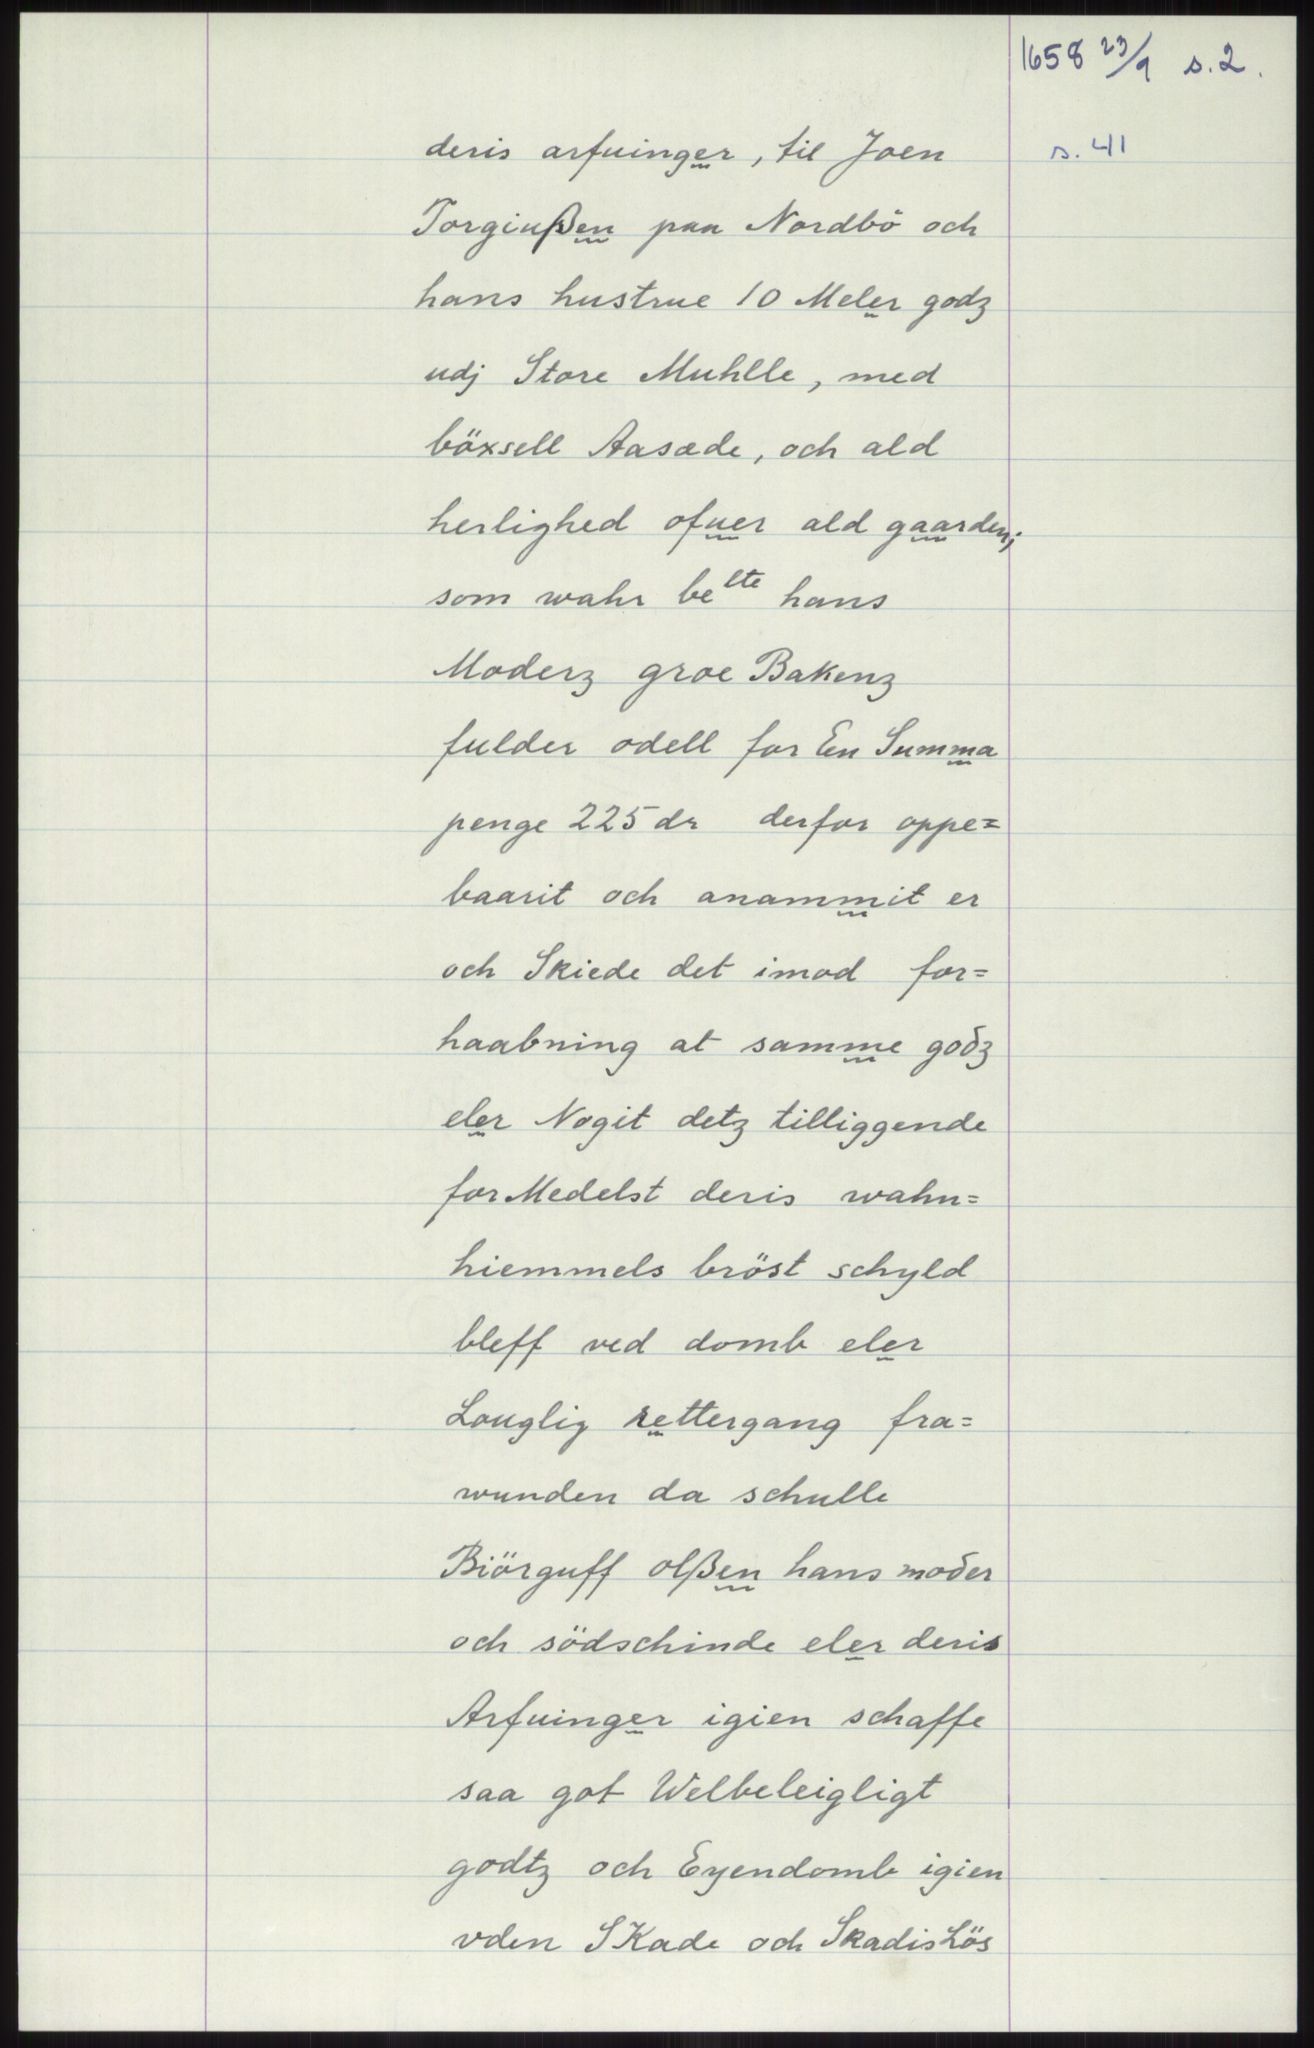 1658 23/9 s.2.
s. 41
deris arfuinger, til Joen
Torgiußen paa Nordbö och
hans hustrue 10 Meler godz
udj Store Muhlle, med
böxsell Aasæde, och ald
herlighed ofuer ald gaarden;
som wahr belte hans
Moderz groe Bakenz
fulder odell for En Summa
penge 225 dr derfor oppe=
baarit och anammit er
och Skiede det imod for=
haabning at samme godz
eler Nogit detz tilliggende
for Medelst deris wahn=
hiemmels bröst schyld
bleff ved domb eler
Louglig rettergang fra=
wunden da schulle
Biörguff olßen hans moder
och södschinde eler deris
Arfuinger igien schaffe
saa got Welbeleigligt
godtz och Eyendomb igien
vden SKade och Skadislös